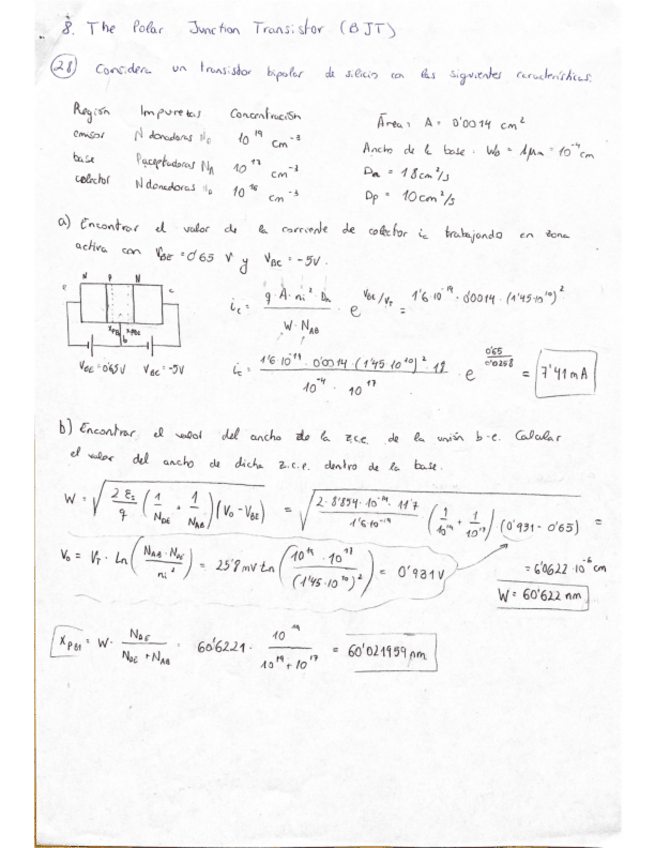 8. The Polar Junction Transistor (BJT)
28 Considera un transistor bipolar de silicio con las siguientes características:
Región Impurezas Concentración
emisor N donadoras N_D 10^19 cm^-3
base P aceptadoras N_A 10^17 cm^-3
colector N donadoras N_D 10^16 cm^-3
Área: A = 0'0014 cm^2
Ancho de la base: W_B = 1μm = 10^-4 cm
D_n = 18 cm^2/s
D_p = 10 cm^2/s
a) Encontrar el valor de la corriente de colector i_c trabajando en zona
activa con V_BE = 0'65 V y V_BC = -5V.
N P N
E C
X_PBE X_PBC
b
V_BE = 0'65V V_BC = -5V
i_c = q·A·n_i^2·D_n / W·N_AB · e^(V_BE/V_T) = 1'6·10^-19·0'0014·(1'45·10^10)^2
i_c = 1'6·10^-19·0'0014·(1'45·10^10)^2·18 / 10^-4·10^17 · e^(0'65/0'0258) = 7'41 mA
b) Encontrar el valor del ancho de la z.c.e. de la unión b-e. Calcular
el valor del ancho de dicha z.c.e. dentro de la base.
W = √(2 ε_s / q (1/N_DE + 1/N_AB)(V_0 - V_BE)) = √(2·8'854·10^-14·11'7 / 1'6·10^-19 (1/10^19 + 1/10^17)(0'931 - 0'65)) =
V_0 = V_T · Ln(N_AB·N_DE / n_i^2) = 25'8 mV Ln(10^19·10^17 / (1'45·10^10)^2) = 0'931V
= 6'0622·10^-6 cm
W = 60'622 nm
X_PBE = W· N_DE / N_DE + N_AB = 60'6221· 10^19 / 10^19 + 10^17 = 60'021959 nm